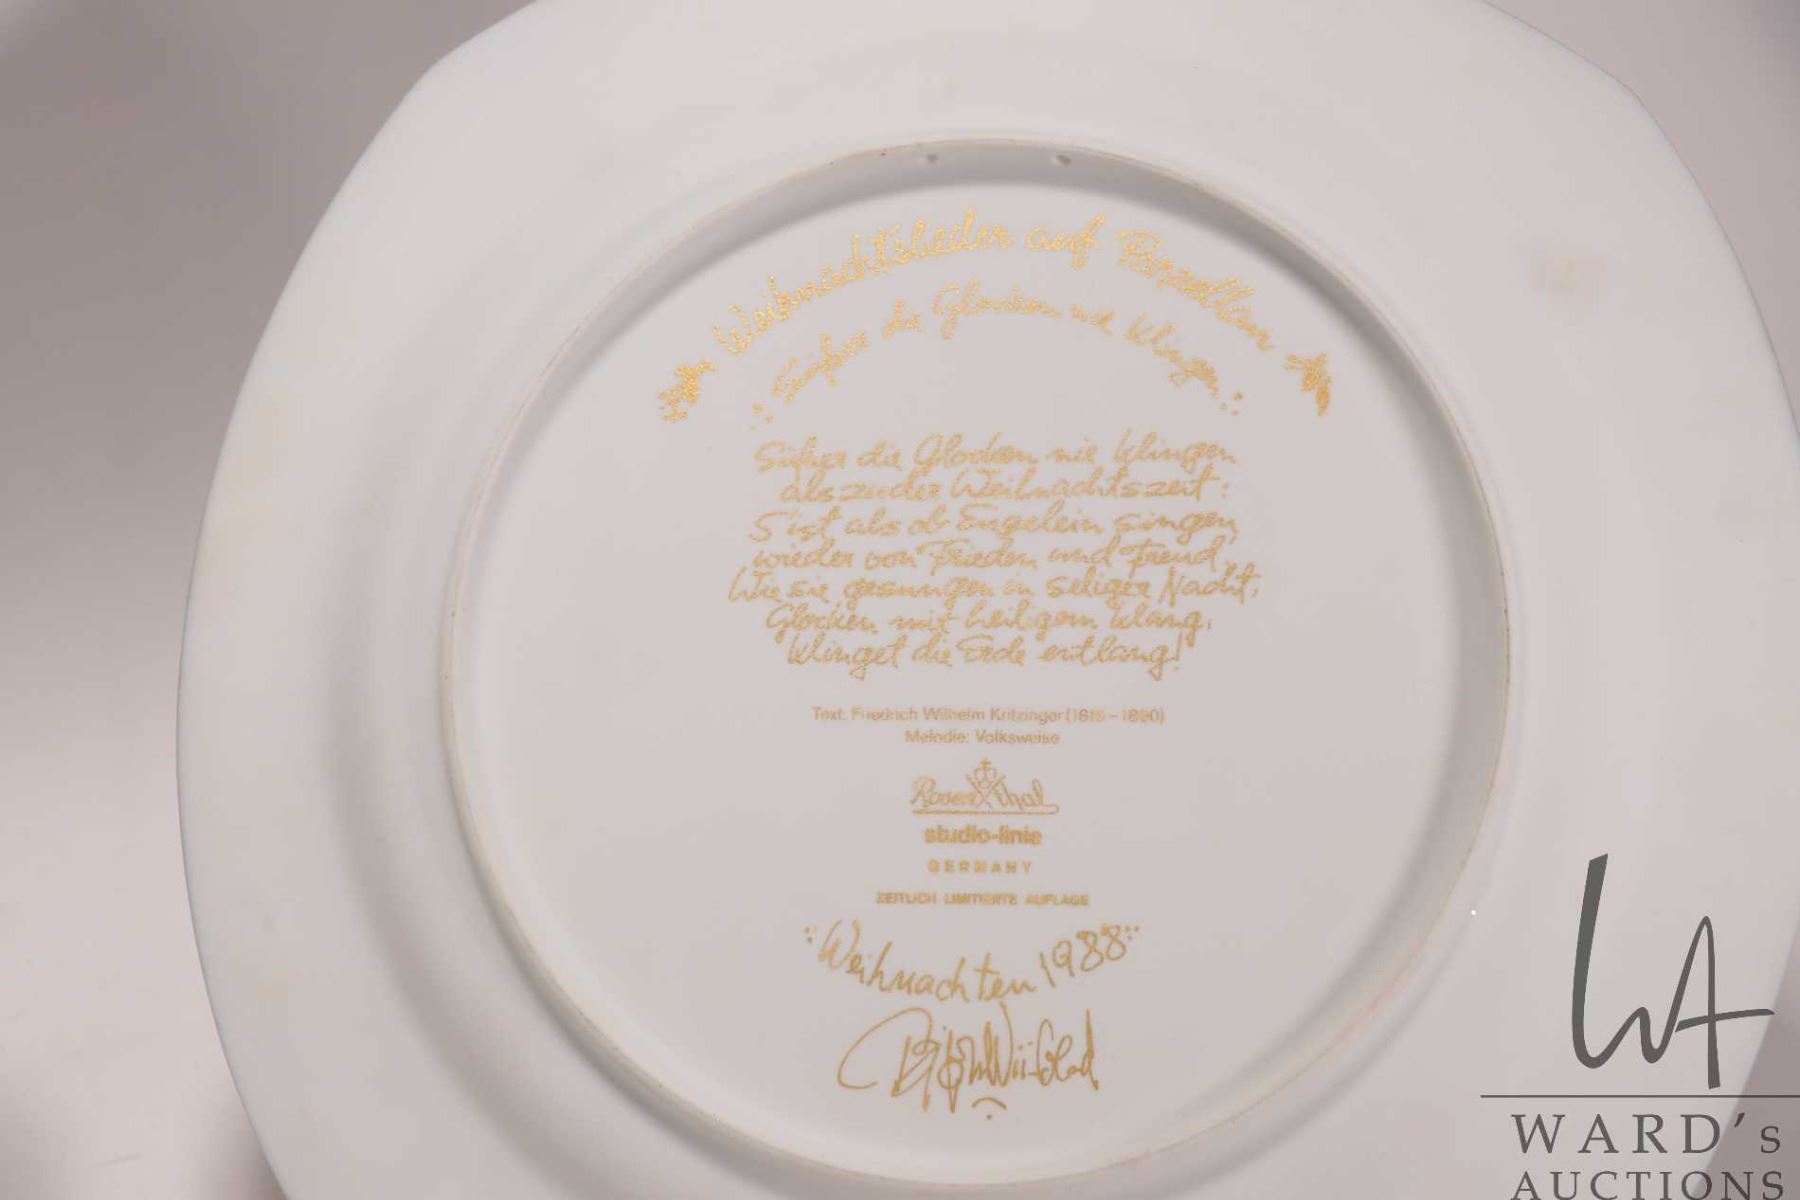 Weihnachtslieder auf Porzellan
Süßer die Glocken nie klingen
Süßer die Glocken nie klingen
als zu der Weihnachtszeit:
S'ist als ob Engelein singen,
wieder von Frieden und Freud,
Wie sie gesungen in seliger Nacht,
Glocken mit heiligem Klang,
klinget die Erde entlang!
Text: Friedrich Wilhelm Kritzinger (1816-1890)
Melodie: Volksweise
Rosenthal
studio-linie
GERMANY
ZEITLICH LIMITIERTE AUFLAGE
Weihnachten 1988
Björn Wiinblad
WA
WARD's
AUCTIONS